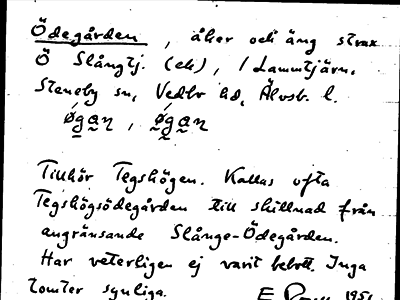 Ödegården, åker och äng strax
Ö Slångtj. (ek), i Lammtjärn,
Steneby sn, Vedbo hd, Älvsb. l.
Tillhör Tegshögen. Kallas ofta
Tegshögsödegården till skillnad från
angränsande Slånge-Ödegården.
Har veterligen ej varit bebott. Inga
tomter synliga. E 1951